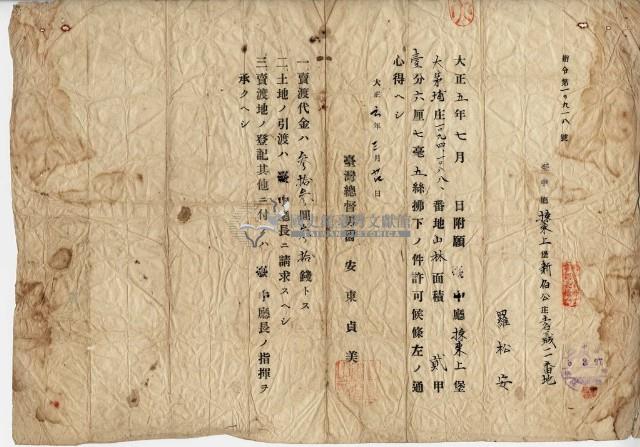 指令第一〇九一八號
臺中廳揀東上堡新伯公庄
番地
羅松安
大正五年七月 日附願臺中廳揀東上堡
大茅埔庄 番地山林面積貳甲
壹分六厘七毫五絲拂下ノ件許可候條左ノ通
心得ヘシ
大正 年三月 日
臺灣總督男爵安東貞美
一賣渡代金ハ參拾 圓 拾錢トス
二土地ノ引渡ハ臺中廳長ニ請求スヘシ
三賣渡地ノ登記其他ニ付テハ臺中廳長ノ指揮ヲ
承クヘシ
國史館臺灣文獻館
TAIWAN HISTORICA